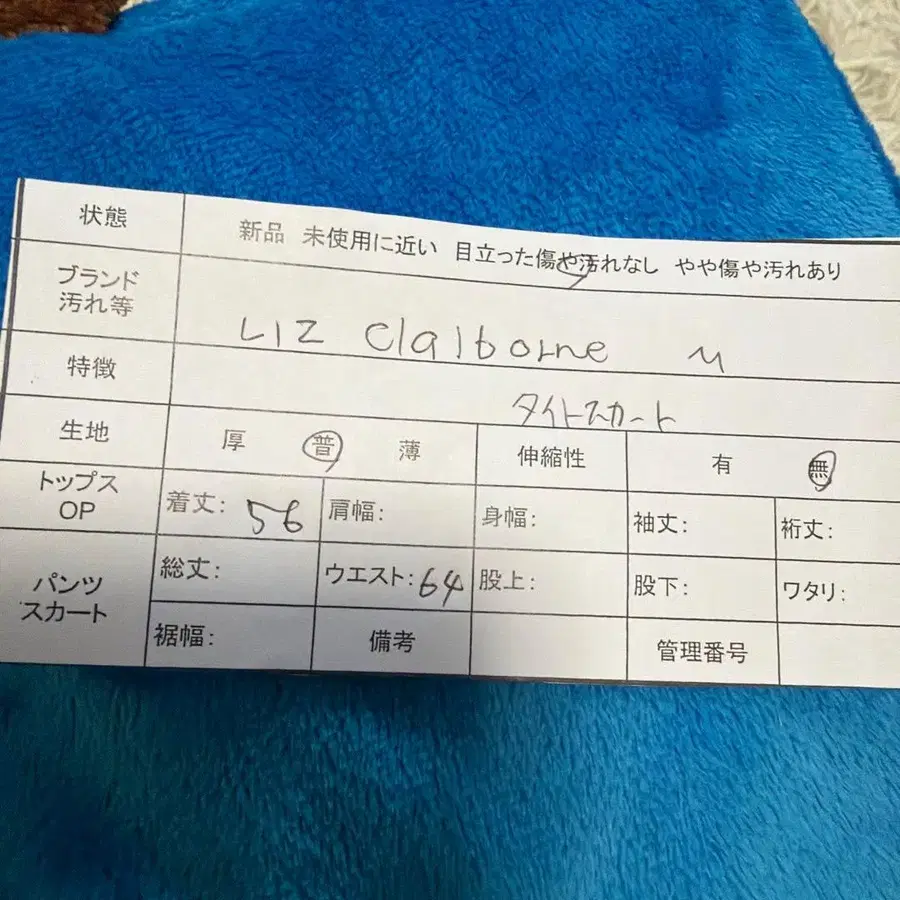 状態 新品 未使用に近い 目立った傷や汚れなし やや傷や汚れあり
ブランド
汚れ等
LIZ Claiborne M
特徴 タイトスカート
生地 厚 普 薄 伸縮性 有 無
トップス
OP
着丈: 56 肩幅: 身幅: 袖丈: 裄丈:
パンツ
スカート
総丈: ウエスト: 64 股上: 股下: ワタリ:
裾幅: 備考 管理番号